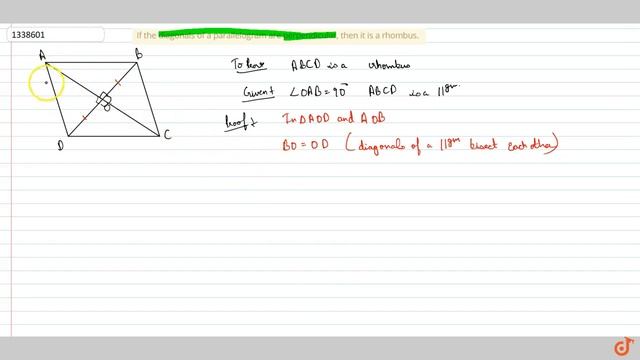 1338601
If the diagonals of a parallelogram are perpendicular, then it is a rhombus.
A
B
To Prove ABCD is a rhombus
Given + ∠OAB = 90° ABCD is a ||gm.
Proof +
In Δ AOD and AOB
O
BO = OD (diagonals of a ||gm bisect each other)
D
C
doubtnut